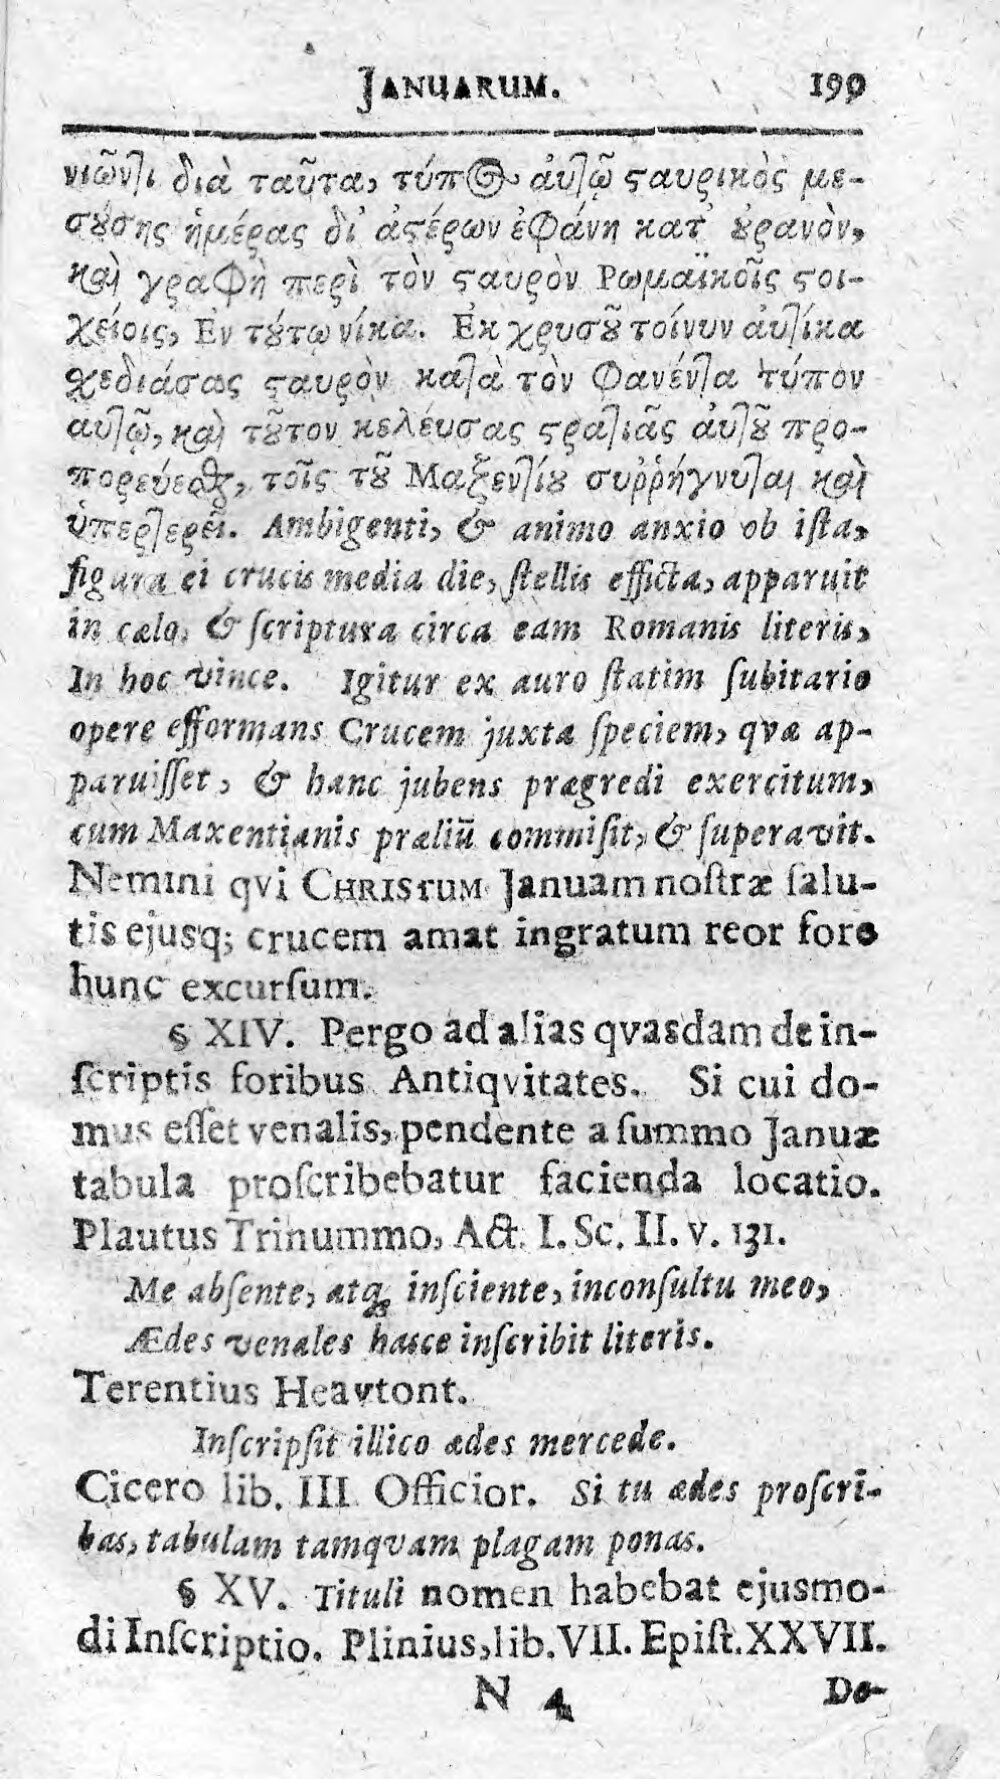 JANUARUM. 199
νιῶντι διὰ ταῦτα, τύπος ἀυτῷ ϛαυρικὸς με-
σȣσης ἡμέρας δι' ἀϛέρων ἐφάνη κατ' ȣρανὸν,
καὶ γραφὴ περὶ τὸν ϛαυρὸν Ρωμαϊκοῖς ϛοι-
χείοις, Εν τȣτῳ νίκα. Εκ χρυσȣ͂ τοίνυν ἀυτίκα
σχεδιάσας ϛαυρὸν κατὰ τὸν φανέντα τύπον
αυτῷ, καὶ τȣ͂τον κελέυσας ϛρατιᾶς ἀυτȣ͂ προ-
πορεύεσθαι, τοῖς τȣ͂ Μαξεντίȣ συῤῥήγνυται καὶ
ὑπερτερεῖ. Ambigenti, & animo anxio ob iſta,
figura ei crucis media die, ſtellis efficta, apparuit
in cælo, & ſcriptura circa eam Romanis literis,
In hoc vince. Igitur ex auro ſtatim ſubitario
opere efformans Crucem juxta ſpeciem, qvæ ap-
paruiſſet, & hanc jubens prægredi exercitum,
cum Maxentianis præliũ commiſit, & ſuperavit.
Nemini qvi CHRISTUM Januam noſtræ ſalu-
tis ejusq; crucem amat ingratum reor fore
hunc excurſum.
§ XIV. Pergo ad alias qvasdam de in-
ſcriptis foribus Antiqvitates. Si cui do-
mus eſſet venalis, pendente a ſummo Januæ
tabula proſcribebatur facienda locatio.
Plautus Trinummo, Act. I. Sc. II. v. 131.
Me abſente, atq; inſciente, inconſultu meo,
Ædes venales hasce inſcribit literis.
Terentius Heavtont.
Inſcripſit illico ædes mercede.
Cicero lib. III Officior. Si tu ædes proſcri-
bas, tabulam tamquam plagam ponas.
§ XV. Tituli nomen habebat ejusmo-
di Inſcriptio. Plinius, lib. VII. Epiſt. XXVII.
N 4 De-